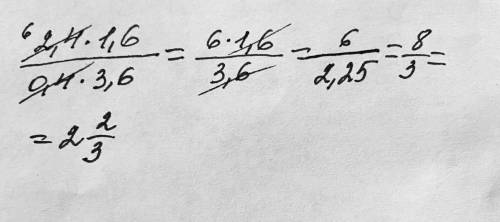 6 2,4 · 1,6 / 0,4 · 3,6 = 6 · 1,6 / 3,6 = 6 / 2,25 = 8 / 3 =
= 2 2/3